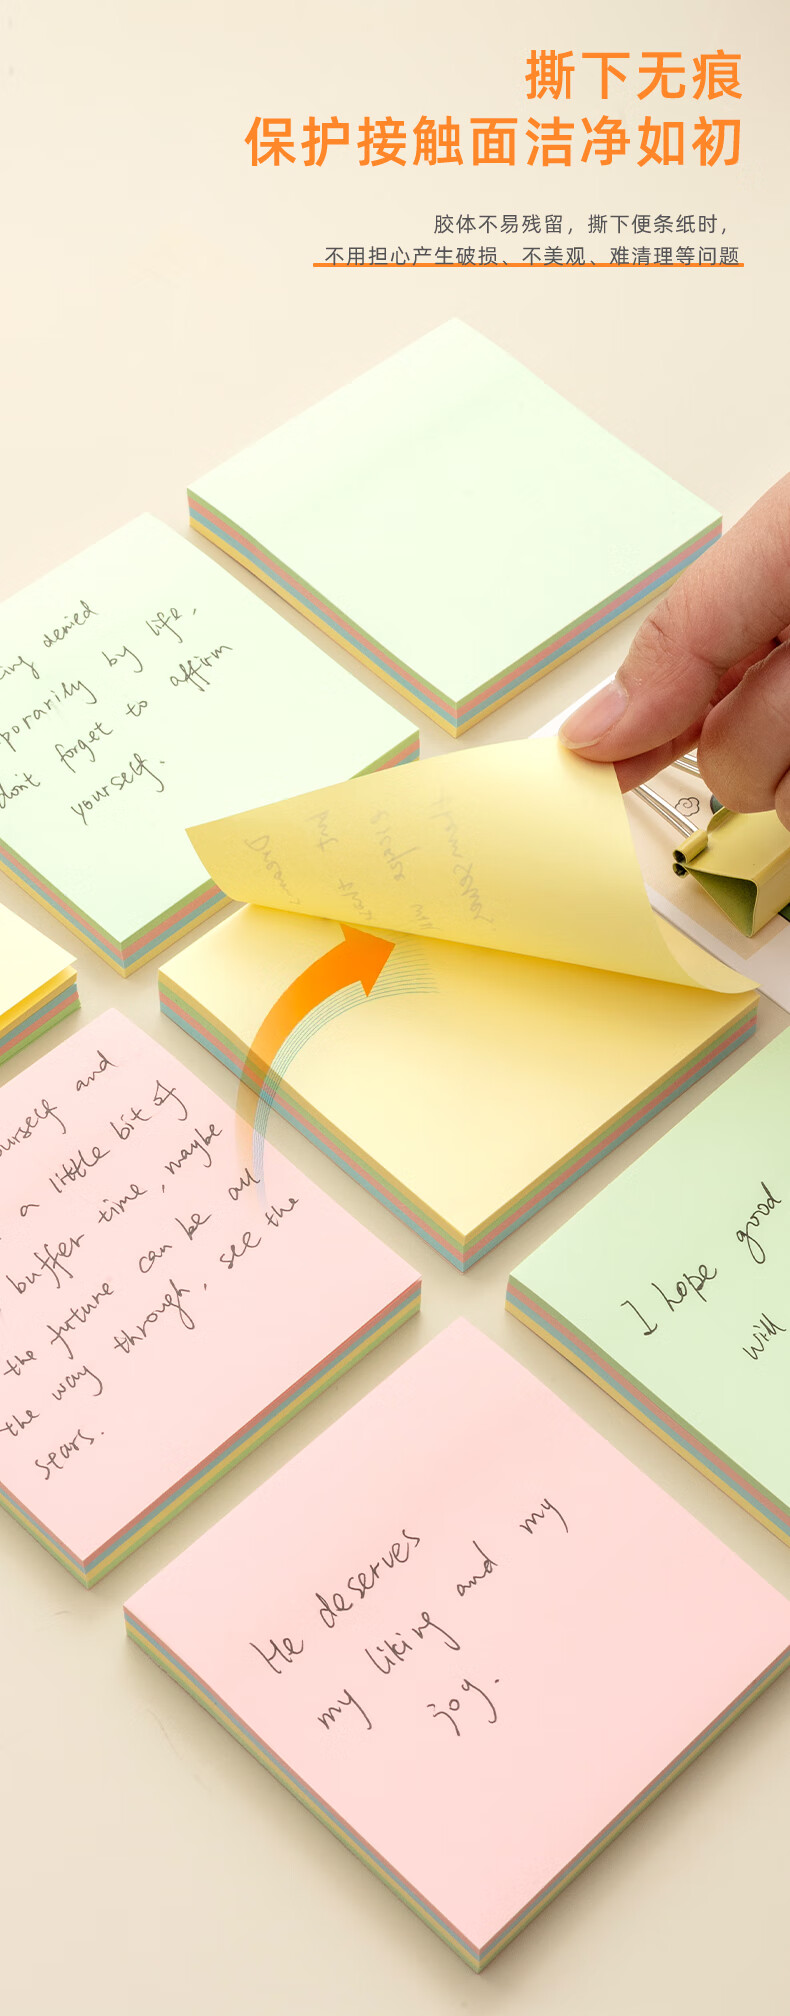 撕下无痕
保护接触面洁净如初
胶体不易残留，撕下便条纸时，
不用担心产生破损、不美观、难清理等问题
denied
by life,
don't forget to affirm
yourself.
and
a little bit of
buffer time, maybe
the future can be all
the way through, see the
stars.
I hope good
will
He deserves
my liking and my
joy.